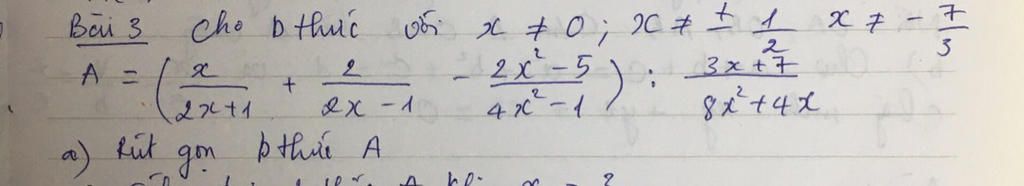 Bài 3 Cho b thức với x ≠ 0; x ≠ ± 1/2 x ≠ - 7/3
A = ( x/(2x+1) + 2/(2x-1) - (2x²-5)/(4x²-1) ) : (3x+7)/(8x²+4x)
a) Rút gọn b thức A